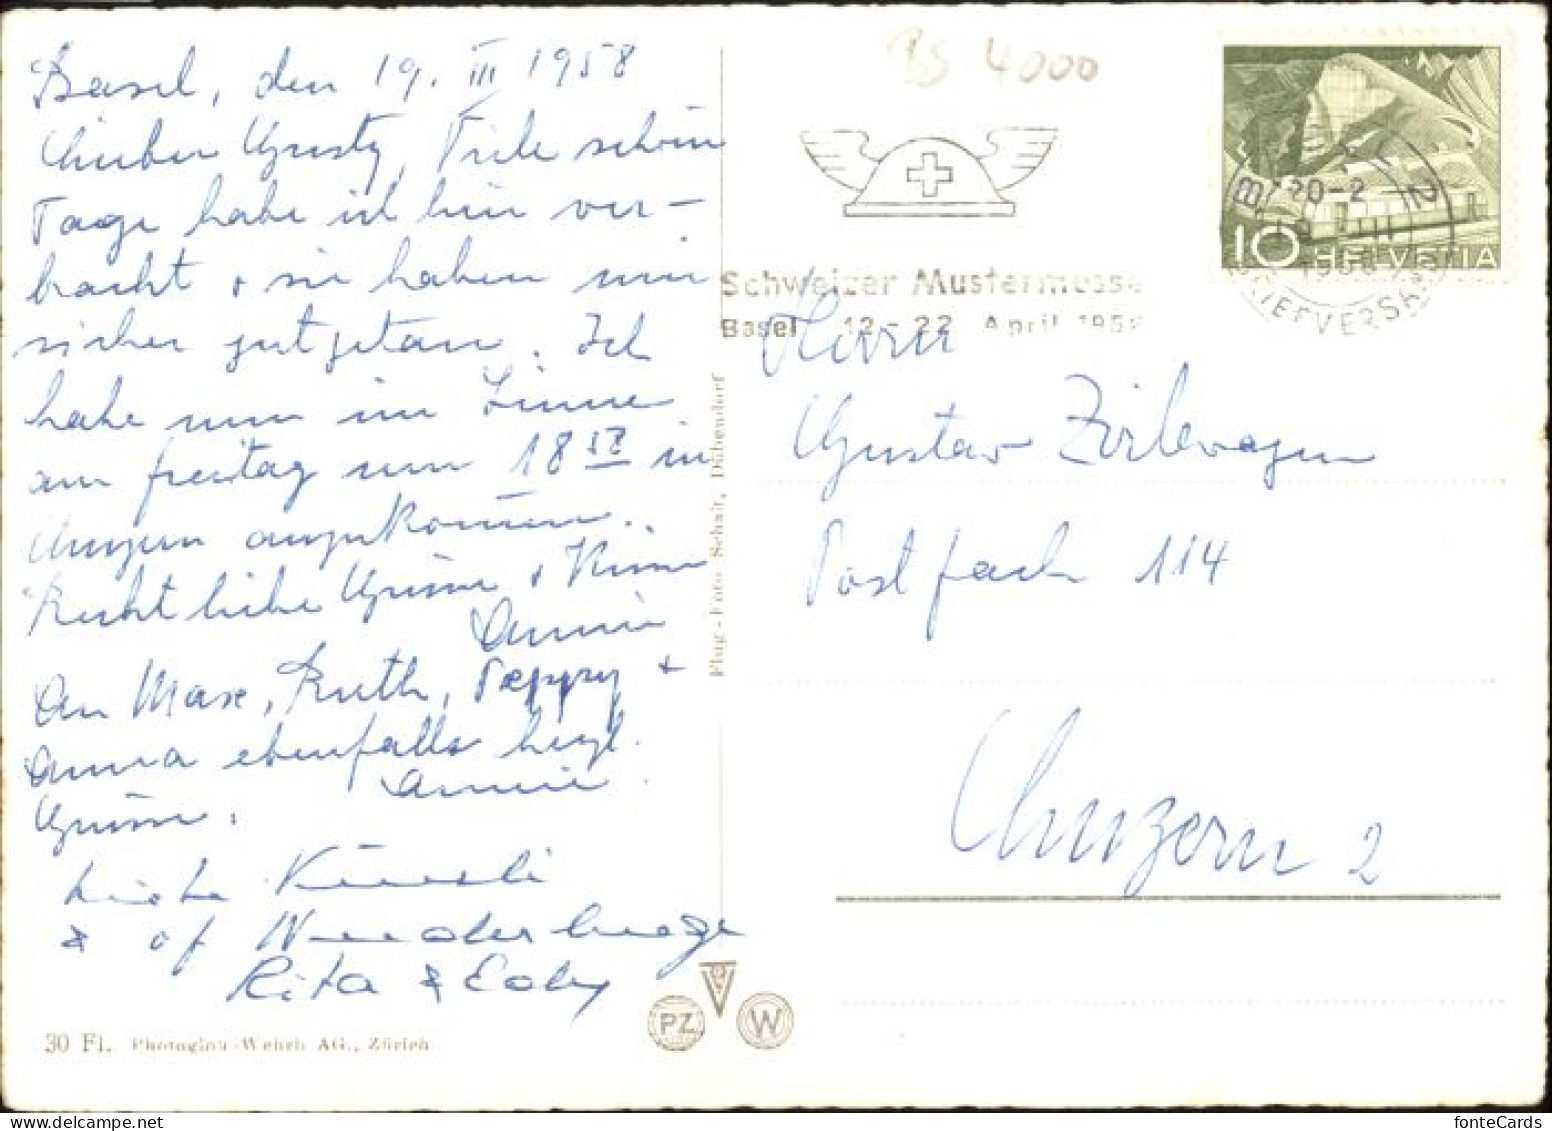 Basel, den 19. III 1958
Lieber Gusty, Viele schöne
Tage habe ich hier ver-
bracht + sie haben mir
sicher gut getan. Ich
habe nun im Sinne
am freitag um 18 58 in
Luzern anzukommen.
Recht liebe Grüsse + Küsse
Annie
An Max, Ruth, Peppy +
Anna ebenfalls herzl.
Grüsse. Annie.
Liebe Küssli
& of Wiederluege
Rita & Edy
30 Fl. Photoglob-Wehrli AG., Zürich
Flug-Foto Schait, Dübendorf
PZ
W
BS 4000
Schweizer Mustermesse
Basel 12-22 April 1958
10 HELVETIA
BRIEFVERSAND
Herrn
Gustav Zirlewagen
Postfach 114
Luzern 2
fonteCards